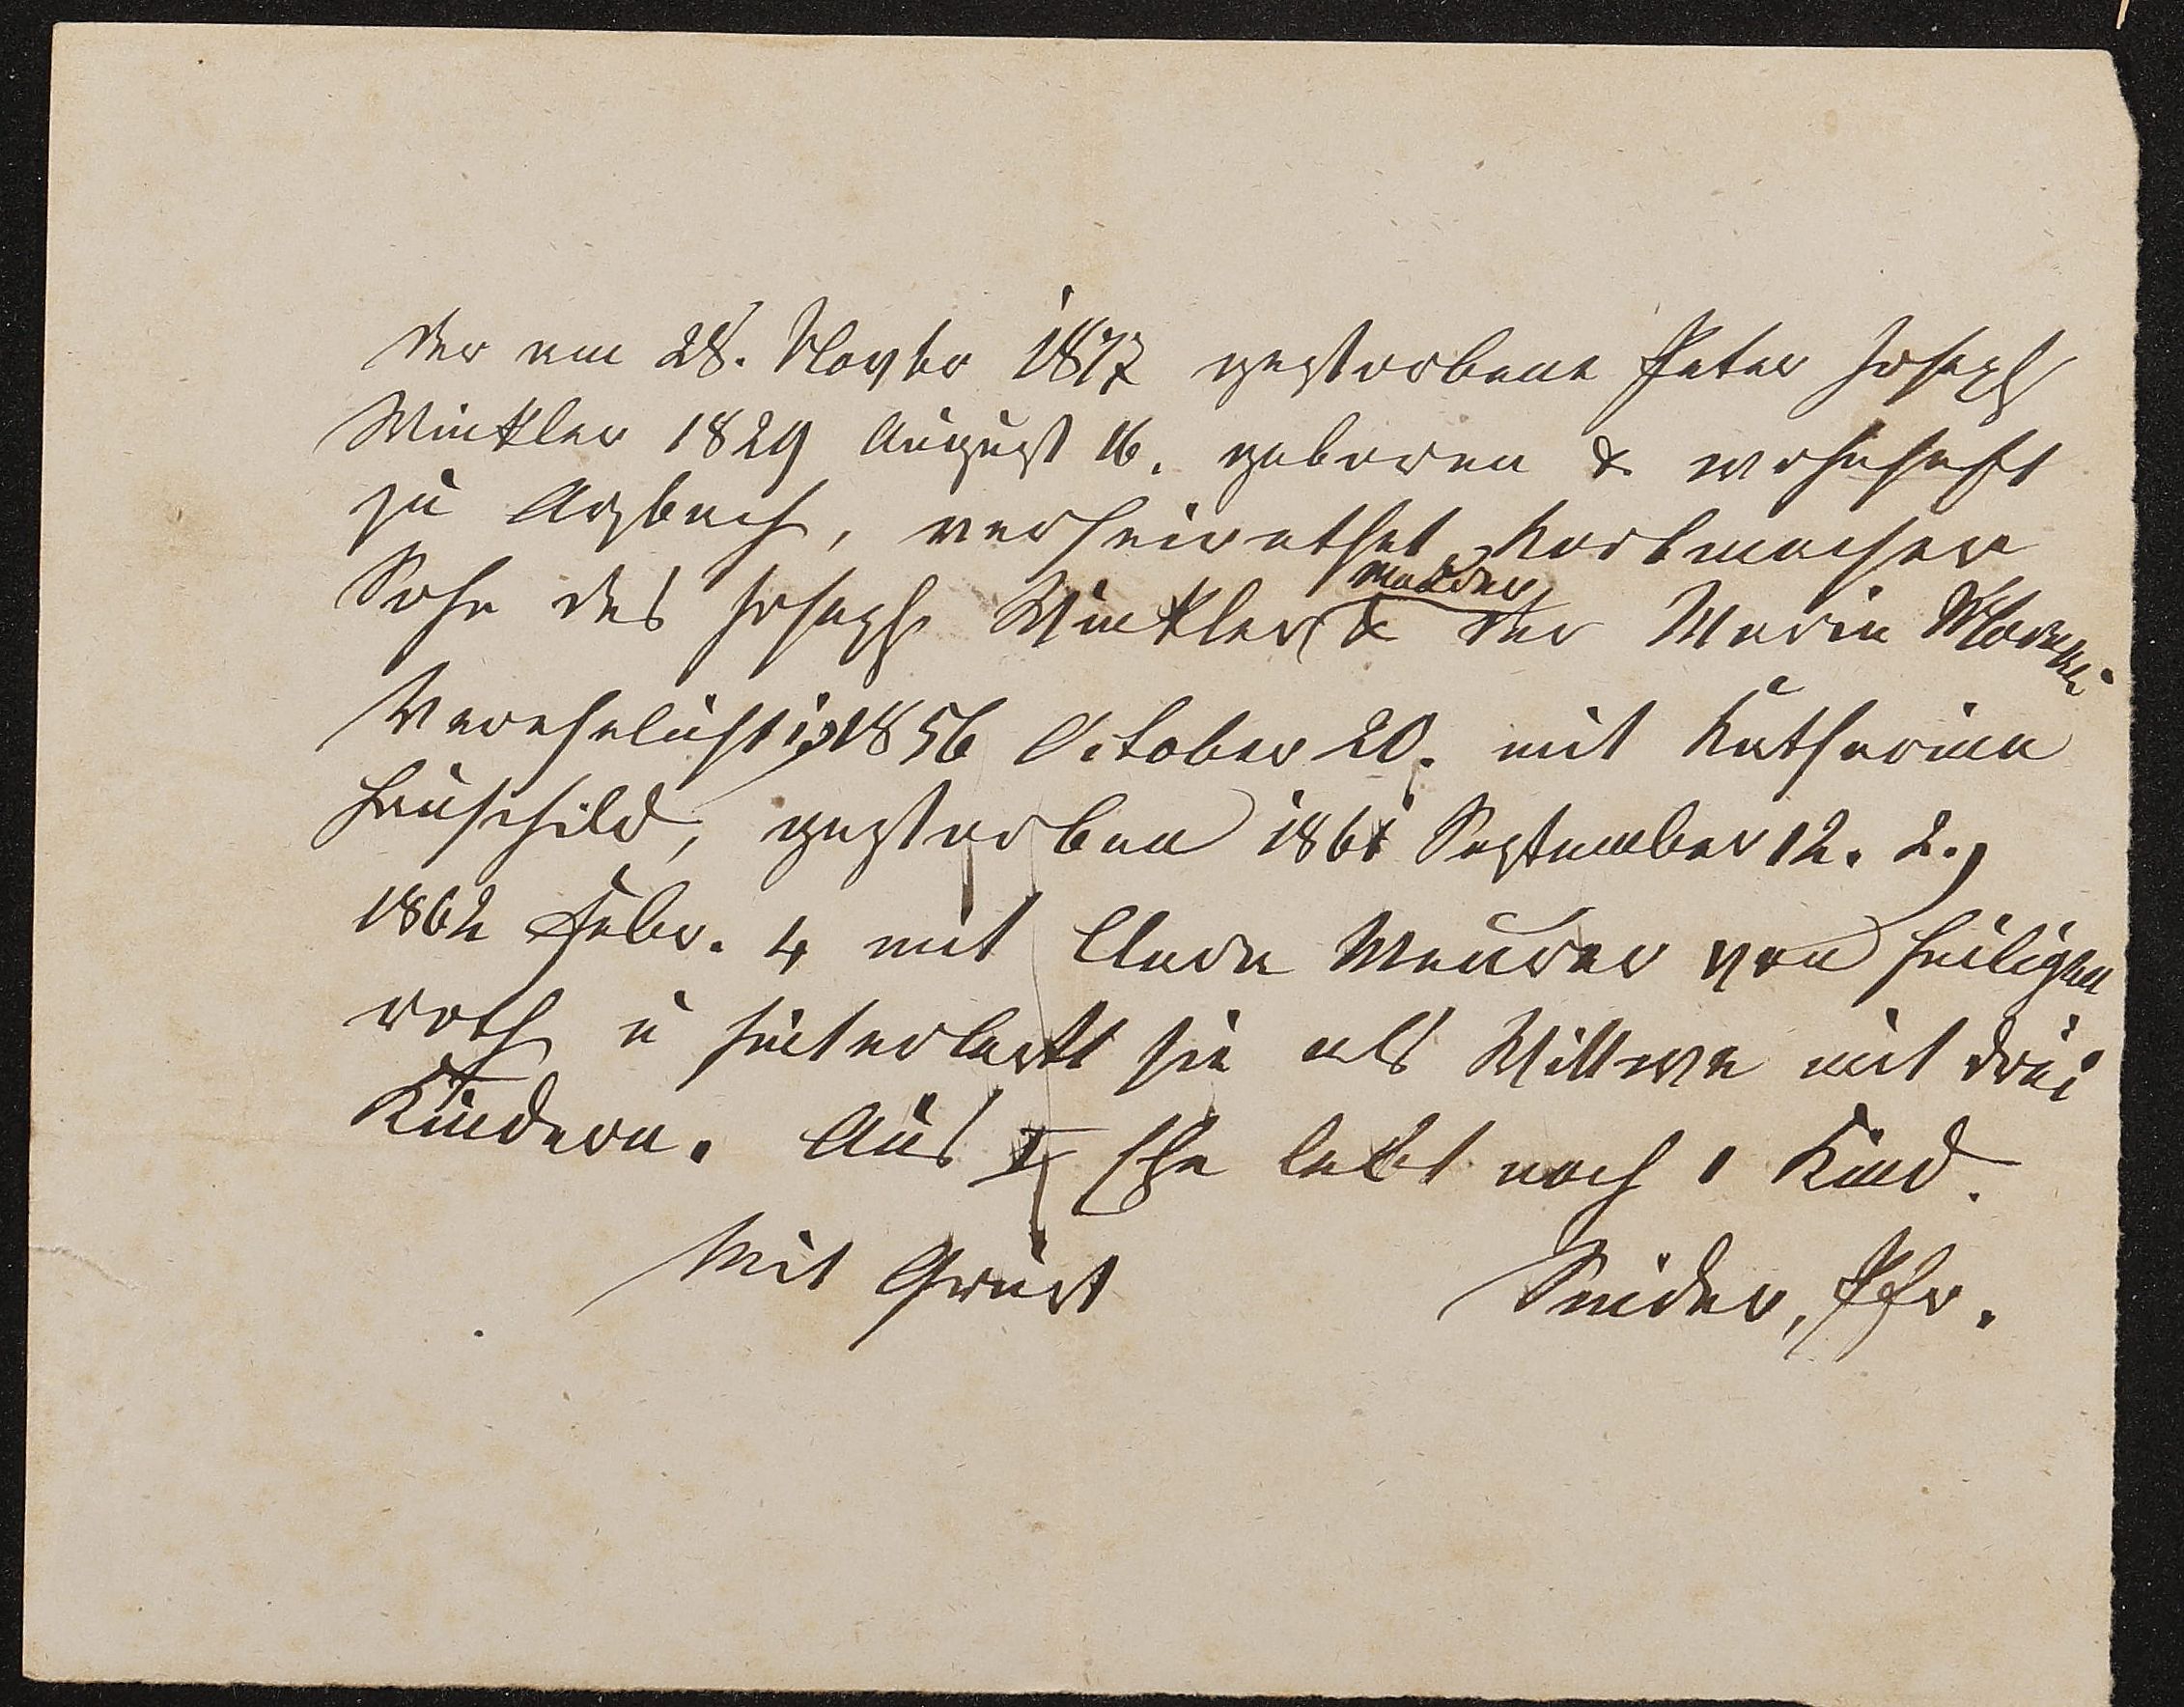 Der am 28. Novbr 1877 gestorbene Peter Joseph
Winkler 1829 August 16. geboren & wohnhaft
zu Arzbach, verheirathet, Korbmacher
Sohn des Joseph Winkler & der Maria
Verehelicht 1) 1856 October 20. mit Katharina
Hauschild, gestorben 1861 September 12. 2.,
1862 Febr. 4 mit Clara Meurer von Heiligen
roth u hinterläßt sie als Wittwe mit drei
Kindern. Aus I Ehe lebt noch 1 Kind.
Mit Gruß Pfr.